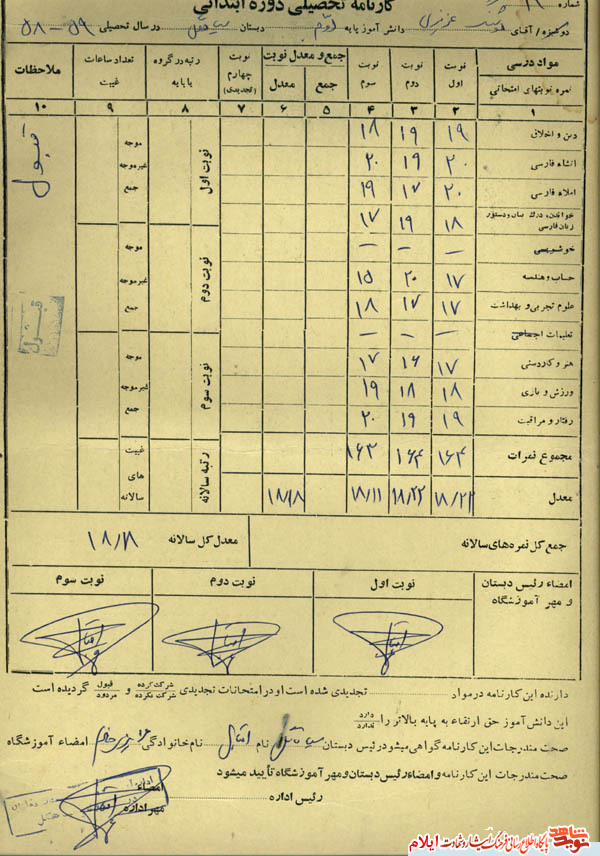 کارنامه تحصیلی دوره ابتدائی
شماره ۱۹
دوشیزه / آقای عزیزی دانش آموز پایه دوم دبستان در سال تحصیلی ۵۹ - ۵۸
مواد درسی نوبت اول نوبت دوم نوبت سوم جمع و معدل نوبت نوبت چهارم (تجدیدی) رتبه در گروه یا پایه تعداد ساعات غیبت ملاحظات
نمره نوبتهای امتحانی جمع معدل
۱ ۲ ۳ ۴ ۵ ۶ ۷ ۸ ۹ ۱۰
دینی و اخلاق ۱۹ ۱۹ ۱۸ نوبت اول موجه قبول
انشاء فارسی ۲۰ ۱۹ ۲۰ غیرموجه
املاء فارسی ۲۰ ۱۷ ۱۹ جمع
خواندن، درک بیان و دستور زبان فارسی ۱۸ ۱۹ ۱۷
خوشنویسی – – – نوبت دوم موجه
حساب و هندسه ۱۷ ۲۰ ۱۵ غیرموجه
علوم تجربی و بهداشت ۱۷ ۱۷ ۱۸ جمع قبول
تعلیمات اجتماعی – – –
هنر و کاردستی ۱۷ ۱۶ ۱۷ نوبت سوم موجه
ورزش و بازی ۱۸ ۱۸ ۱۹ غیرموجه
رفتار و مراقبت ۱۹ ۱۹ ۲۰ جمع
مجموع نمرات ۱۶۴ ۱۶۴ ۱۶۳ رتبه سالانه غیبت های سالانه
معدل ۱۸/۲۲ ۱۸/۲۲ ۱۸/۱۱ ۱۸/۱۸
جمع کل نمره های سالانه معدل کل سالانه ۱۸/۱۸
امضاء رئیس دبستان و مهر آموزشگاه نوبت اول نوبت دوم نوبت سوم
دارنده این کارنامه در مواد ........ تجدیدی شده است او در امتحانات تجدیدی شرکت کرده شرکت نکرده و قبول مردود گردیده است
این دانش آموز حق ارتقاء به پایه بالاتر را دارد ندارد
صحت مندرجات این کارنامه گواهی میشود رئیس دبستان نام نام خانوادگی امضاء آموزشگاه
صحت مندرجات این کارنامه و امضاء رئیس دبستان و مهر آموزشگاه تأیید میشود
رئیس اداره ........ امضاء مهر اداره
نوید شاهد پایگاه اطلاع رسانی فرهنگ ایثار و شهادت ایلام